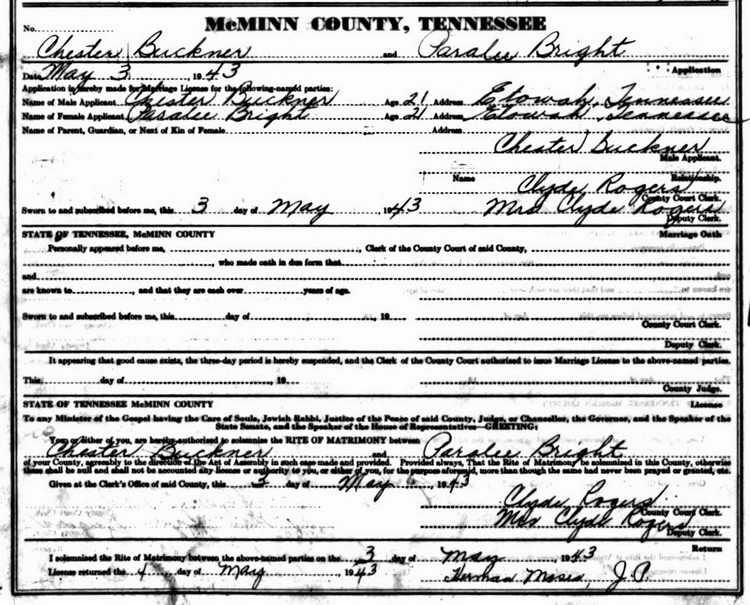 McMINN COUNTY, TENNESSEE
No.
Chester Buckner and Paralee Bright
Date May 3 1943 Application
Application is hereby made for Marriage License for the following-named parties:
Name of Male Applicant Chester Buckner Age 21 Address Etowah, Tennessee
Name of Female Applicant Paralee Bright Age 21 Address Etowah, Tennessee
Name of Parent, Guardian, or Next of Kin of Female Address
Chester Buckner
Male Applicant.
Name Relationship.
Clyde Rogers
County Court Clerk.
Sworn to and subscribed before me, this 3 day of May 1943 Mrs Clyde Rogers
Deputy Clerk.
STATE OF TENNESSEE, McMINN COUNTY Marriage Oath
Personally appeared before me, , Clerk of the County Court of said County,
, who made oath in due form that
and
are known to , and that they are each over years of age.
Sworn to and subscribed before me, this day of , 19
County Court Clerk.
Deputy Clerk.
It appearing that good cause exists, the three-day period is hereby suspended, and the Clerk of the County Court authorized to issue Marriage License to the above-named parties.
This day of , 19
County Judge.
STATE OF TENNESSEE, McMINN COUNTY License
To any Minister of the Gospel having the Care of Souls, Jewish Rabbi, Justice of the Peace of said County, Judge, or Chancellor, the Governor, and the Speaker of the
State Senate, and the Speaker of the House of Representatives—GREETING:
You, or either of you, are hereby authorized to solemnize the RITE OF MATRIMONY between
Chester Buckner and Paralee Bright
of your County, agreeably to the direction of the Act of Assembly in such case made and provided. Provided always, That the Rite of Matrimony be solemnized in this County, otherwise
these shall be null and shall not be accounted any license or authority to you, or either of you, for the purpose aforesaid, more than though the same had never been prayed or granted, etc.
Given at the Clerk's Office of said County, this 3 day of May 1943
Clyde Rogers
County Court Clerk.
Mrs Clyde Rogers
Deputy Clerk.
Return
I solemnized the Rite of Matrimony between the above-named parties on the 3 day of May 1943
License returned the 4 day of May 1943 Herman Moses, J.P.